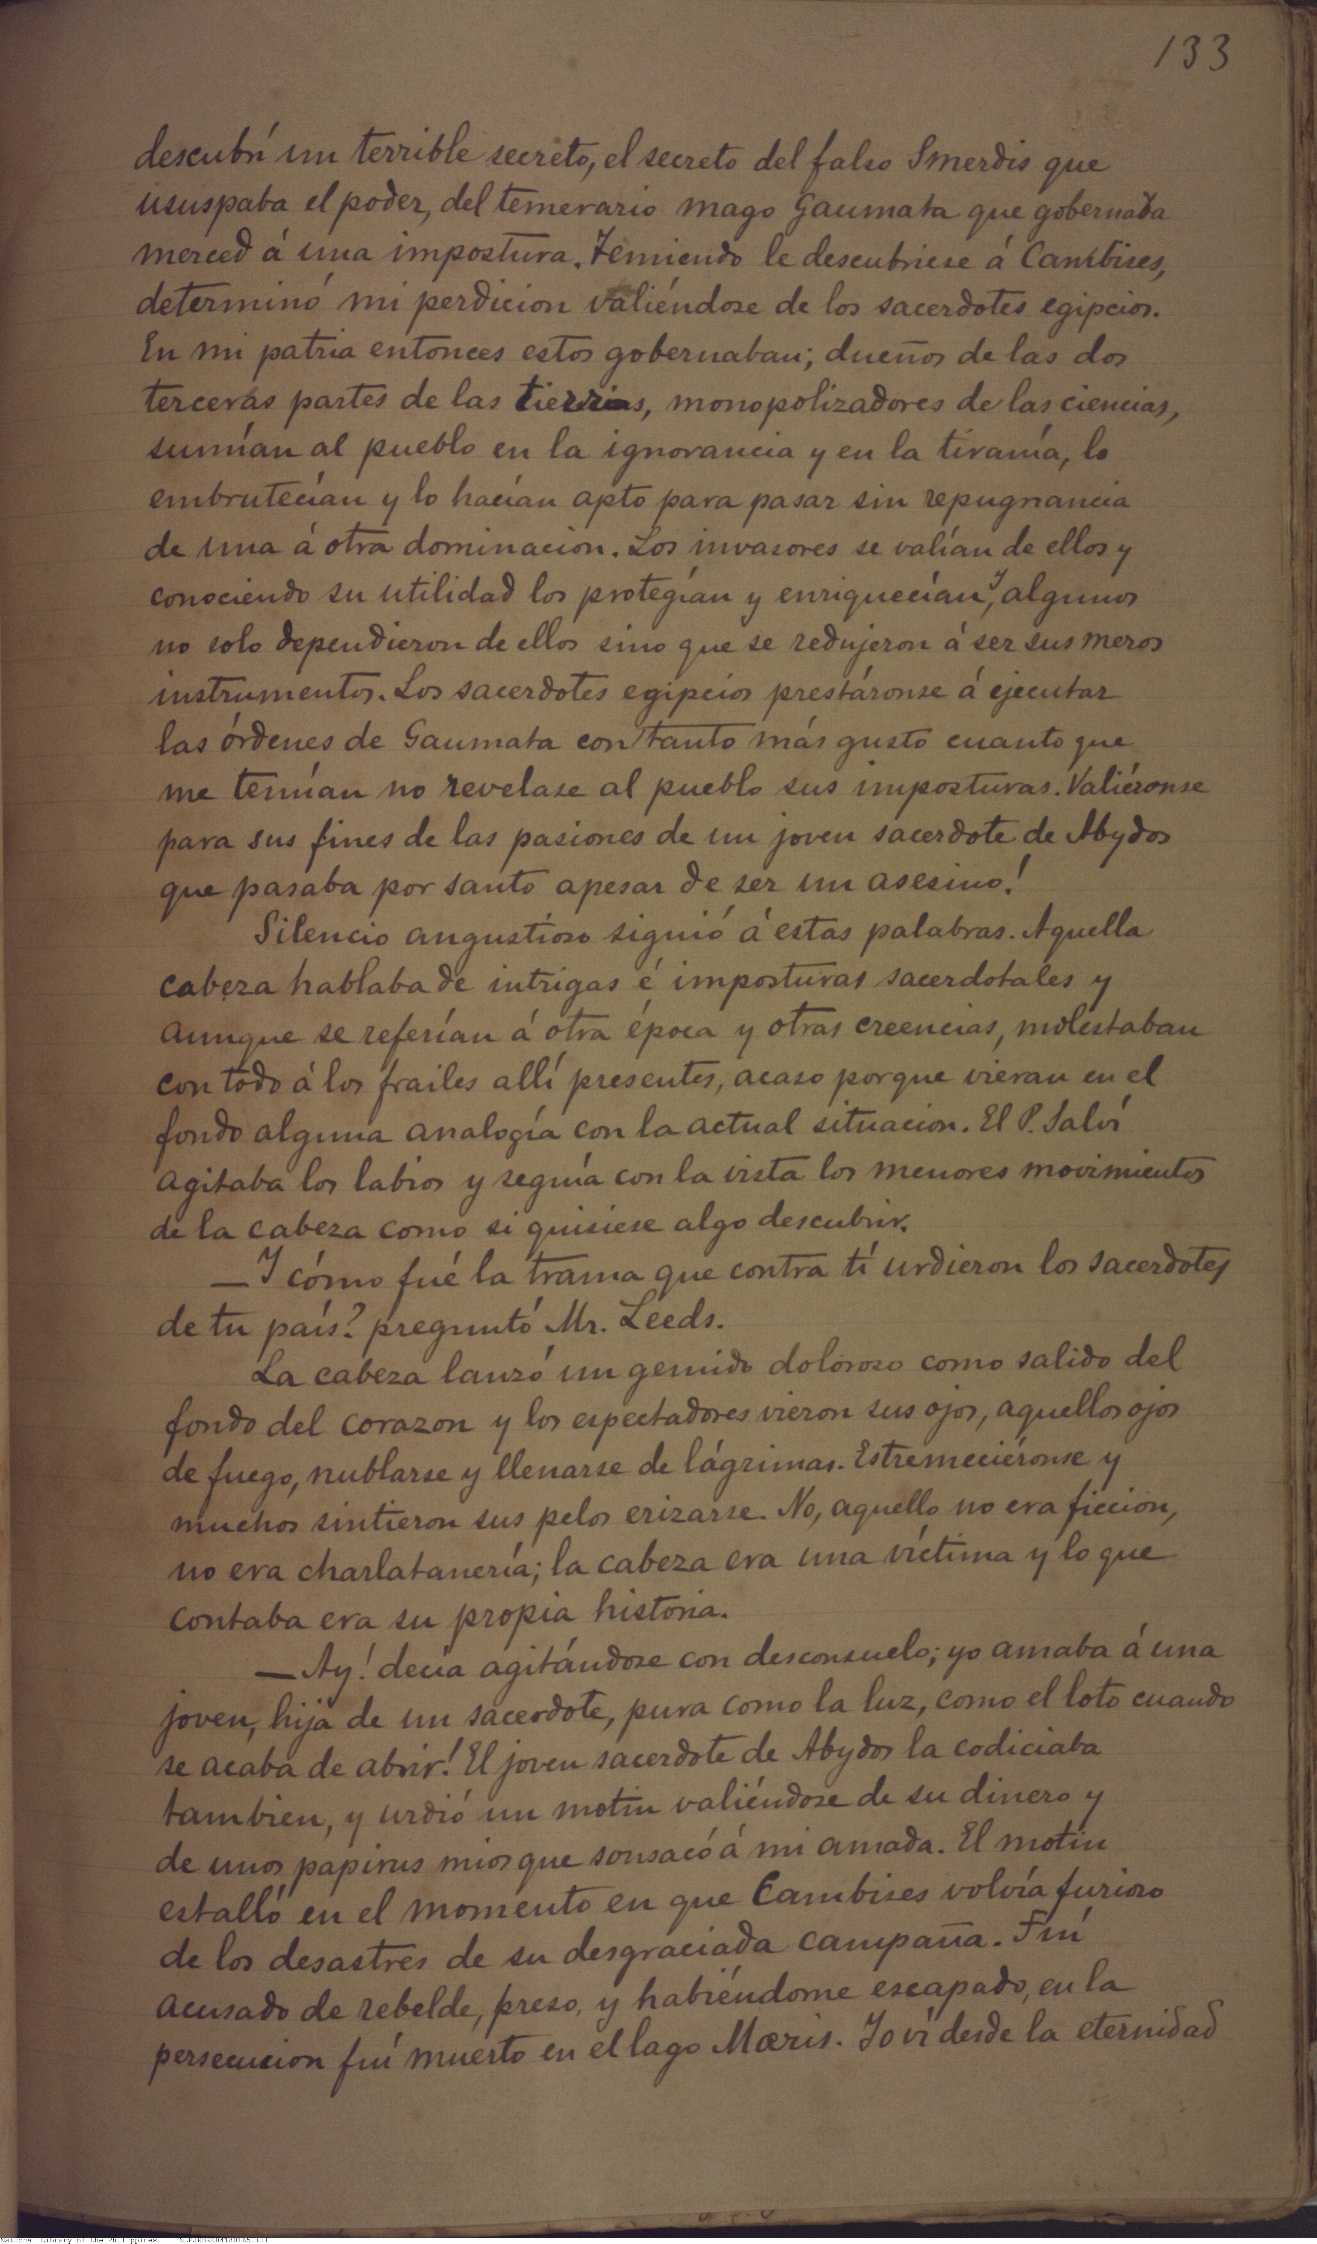 133
descubrí un terrible secreto, el secreto del falso Smerdis que
ususpaba el poder, del temerario mago Gaumata que gobernaba
merced á una impostura. Temiendo le descubriese á Cambises,
determinó mi perdicion valiéndose de los sacerdotes egipcios.
En mi patria entonces estos gobernaban; dueños de las dos
terceras partes de las tierras, monopolizadores de las ciencias,
sumían al pueblo en la ignorancia y en la tiranía, lo
embrutecían y lo hacían apto para pasar sin repugnancia
de una á otra dominacion. Los invasores se valían de ellos y
conociendo su utilidad los protegían y enriquecían, y algunos
no solo dependieron de ellos sino que se redujeron á ser sus meros
instrumentos. Los sacerdotes egipcios prestáronse á ejecutar
las órdenes de Gaumata con tanto más gusto cuanto que
me temían no revelase al pueblo sus imposturas. Valiéronse
para sus fines de las pasiones de un joven sacerdote de Abydos
que pasaba por santo apesar de ser un asesino!
Silencio angustioso siguió á estas palabras. Aquella
cabeza hablaba de intrigas é imposturas sacerdotales y
aunque se referían á otra época y otras creencias, molestaban
con todo á los frailes allí presentes, acaso porque vieran en el
fondo alguna analogía con la actual situacion. El P. Salví
agitaba los labios y seguía con la vista los menores movimientos
de la cabeza como si quisiese algo descubrir.
—Y cómo fué la trama que contra tí urdieron los sacerdotes
de tu país? preguntó Mr. Leeds.
La cabeza lanzó un gemido doloroso como salido del
fondo del corazon y los espectadores vieron sus ojos, aquellos ojos
de fuego, nublarse y llenarse de lágrimas. Estremeciéronse y
muchos sintieron sus pelos erizarse. No, aquello no era ficcion,
no era charlatanería; la cabeza era una víctima y lo que
contaba era su propia historia.
—Ay! decía agitándose con desconsuelo; yo amaba á una
joven, hija de un sacerdote, pura como la luz, como el loto cuando
se acaba de abrir! El joven sacerdote de Abydos la codiciaba
tambien, y urdió un motin valiéndose de su dinero y
de unos papirus mios que sonsacó á mi amada. El motin
estalló en el momento en que Cambises volvía furioso
de los desastres de su desgraciada campaña. Fuí
acusado de rebelde, preso, y habiéndome escapado, en la
persecucion fuí muerto en el lago Mœris. Yo ví desde la eternidad